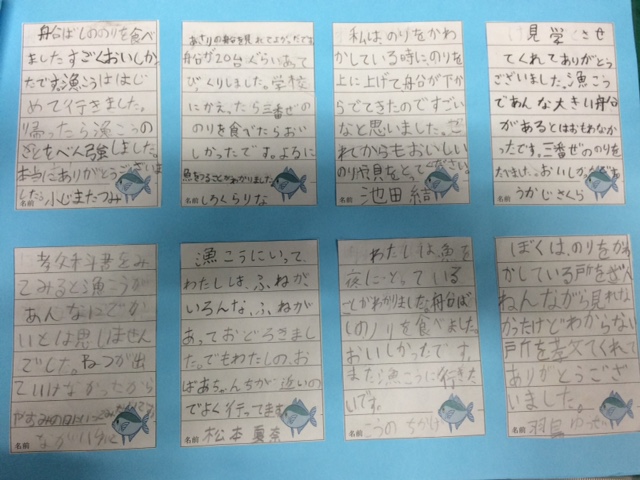 舟合ばしののりを食べ
ましたすごくおいしか
たです。漁こうははじ
めて行きました。
帰ったら漁こうの
ことをべん強しました。
本当にありがとうございま
した。
名前
あさりの舟合を見れてよう
舟合が20台ぐらいあって
びっくりしました。学校
にかえったら三番ぜの
のりを食べたらおい
しかったです。よるに
魚をつることがわかりました
名前 しらくらりな
私は、のりをかわ
かしている時にのりを
上に上げて舟合が下か
らでてきたのですごい
なと思いました。こ
れからもおいしい
のりや貝をとってください。
名前 池田 結
見学させ
てくれてありがとう
ございました。漁こう
であんな大きい舟合
があるとはおもわなか
ったです。三番ぜののりを
たべました。おいしか
名前 うかじさくら
をみ
てみると漁こうが
あんなにでか
いとは思いません
でした。ねつが出
ていけなかったから
名前
漁こうにいって、
わたしは、ふねが、
いろんな、ふねが
あっておどろきまし
た。でもわたしの、お
ばあちゃんちが近いの
でよく行ってます
名前 松本 夏奈
わたしは、魚を
夜にとっている
ことがわかりました。舟合ば
しのノリを食べました。
おいしかったです。
また漁こうに行きた
いです。
名前 こうの ちかげ
ぼくは、のりをか
かしている所をざん
ねんながら見れな
かったけどわからない
所を答えてくれて
ありがとうござ
いました。
名前 羽鳥